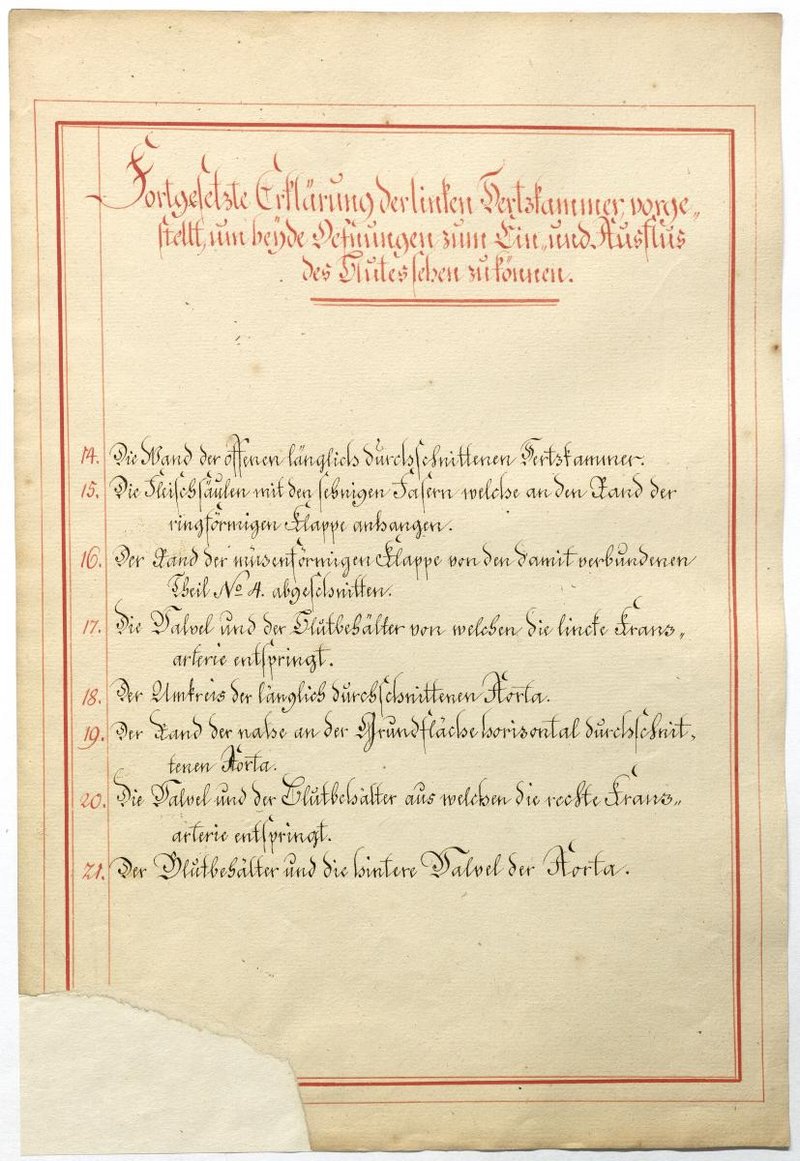 Fortgesetzte Erklärung der linken Hertzkammer, vorge„
stellt, um beyde Oefnungen zum Ein„ und Ausflus
des Blutes sehen zu können.
14. Die Wand der offenen länglich durchschnittenen Hertzkammer.
15. Die Fleischsäulen mit den sehnigen Fasern welche an den Rand der
ringförmigen Klappe anhangen.
16. Der Rand der müzenförmigen Klappe von den damit verbundenen
Theil No 4. abgeschnitten.
17. Die Valvel und der Blutbehälter von welchen die lincke Kranz„
arterie entspringt.
18. Der Umkreis der länglich durchschnittenen Aorta.
19. Der Rand der nahe an der Grundfläche horizontal durchschnit„
tenen Aorta.
20. Die Valvel und der Blutbehälter aus welchen die rechte Kranz„
arterie entspringt.
21. Der Blutbehälter und die hintere Valvel der Aorta.